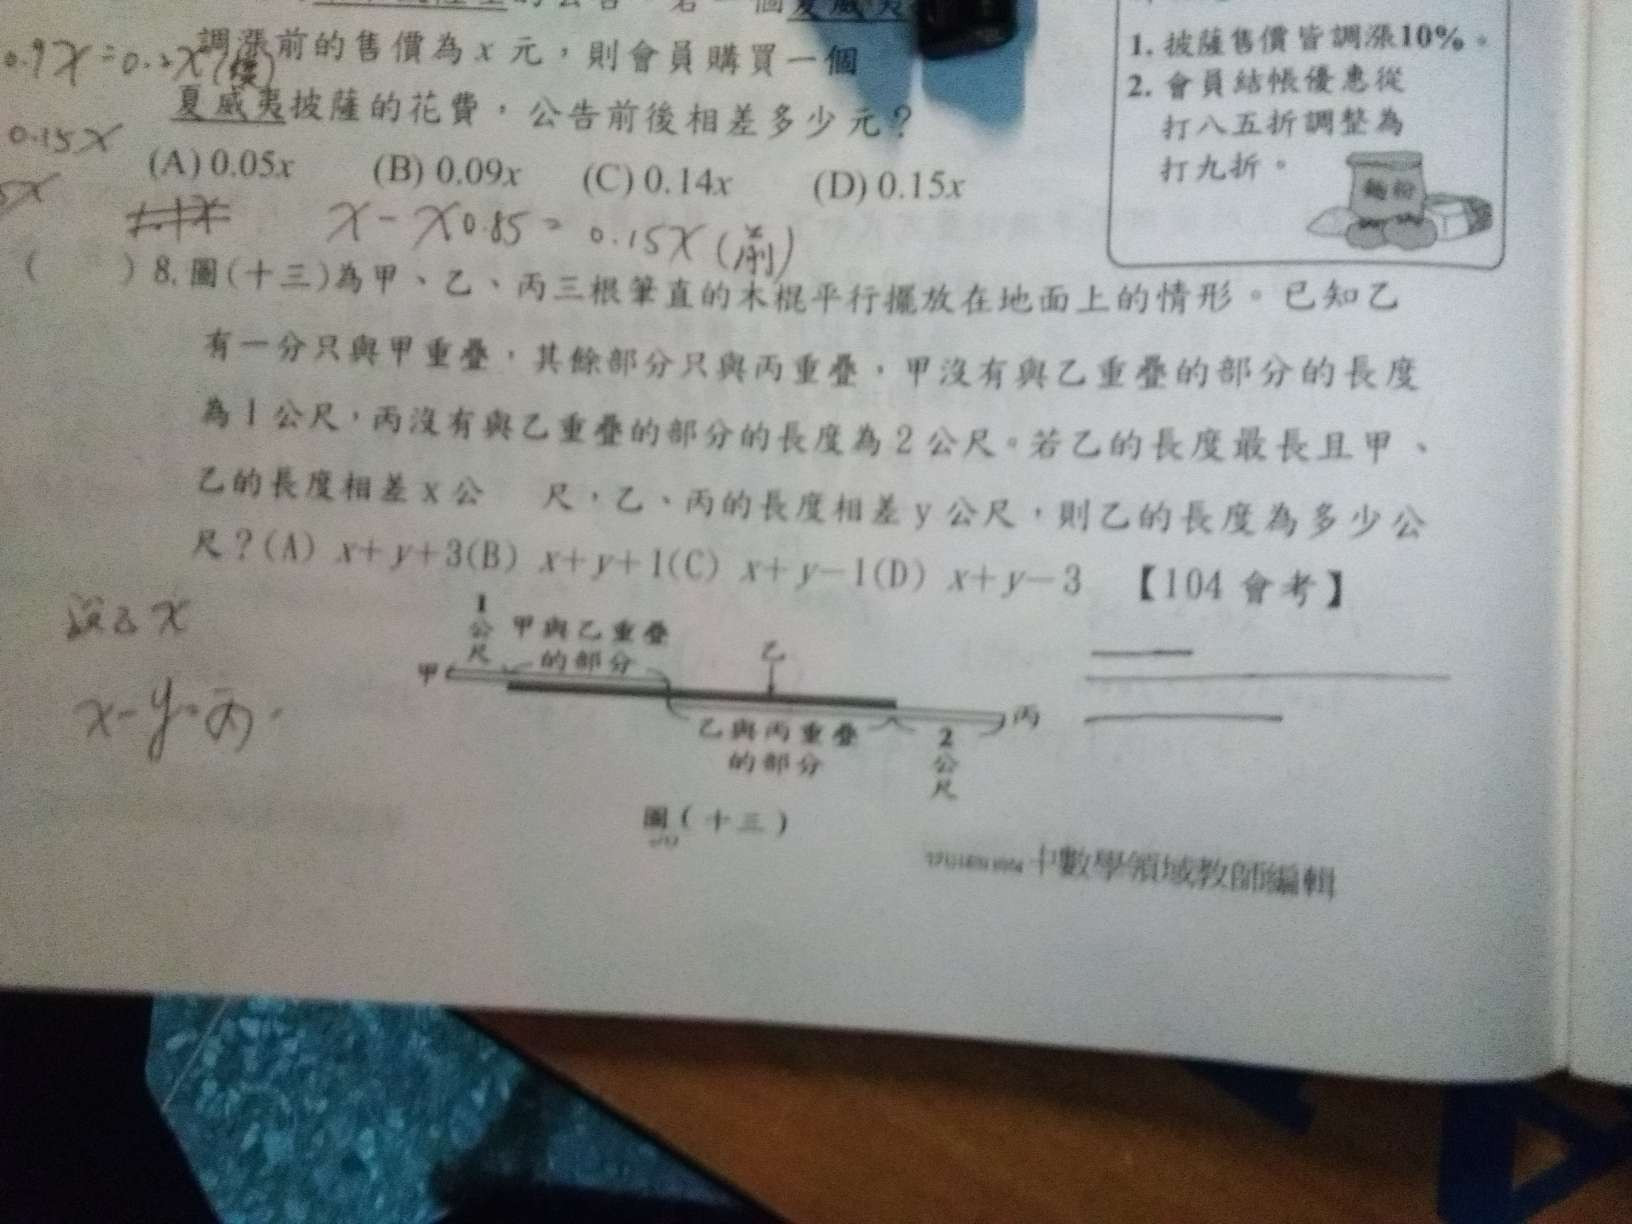 調漲前的售價為x元，則會員購買一個
夏威夷披薩的花費，公告前後相差多少元？
(A) 0.05x (B) 0.09x (C) 0.14x (D) 0.15x
1. 披薩售價皆調漲10%。
2. 會員結帳優惠從
打八五折調整為
打九折。
麵粉
0.15x
x－x0.85＝0.15x(前)
( ) 8. 圖(十三)為甲、乙、丙三根筆直的木棍平行擺放在地面上的情形。已知乙
有一分只與甲重疊，其餘部分只與丙重疊，甲沒有與乙重疊的部分的長度
為1公尺，丙沒有與乙重疊的部分的長度為2公尺。若乙的長度最長且甲、
乙的長度相差x公 尺，乙、丙的長度相差y公尺，則乙的長度為多少公
尺？(A) x＋y＋3(B) x＋y＋1(C) x＋y－1(D) x＋y－3 【104 會考】
設乙x
x－y＝丙
1公尺
甲與乙重疊
的部分
甲
乙
丙
乙與丙重疊
的部分
2公尺
圖(十三)
中數學領域教師編輯